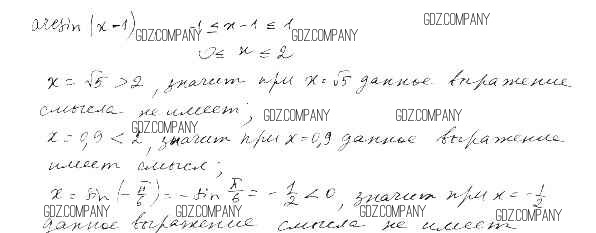 GDZ.COMPANY
arcsin (x-1) -1 ≤ x-1 ≤ 1
GDZ.COMPANY GDZ.COMPANY
0 ≤ x ≤ 2
x = √5 > 2, значит при x = √5 данное выражение
смысла не имеет; GDZ.COMPANY GDZ.COMPANY
GDZ.COMPANY
x = 0,9 < 2, значит при x = 0,9 данное выражение
имеет смысл;
x = sin(-π/6) = -sin π/6 = -1/2 < 0, значит при x = -1/2
GDZ.COMPANY GDZ.COMPANY GDZ.COMPANY GDZ.COMPANY
данное выражение смысла не имеет